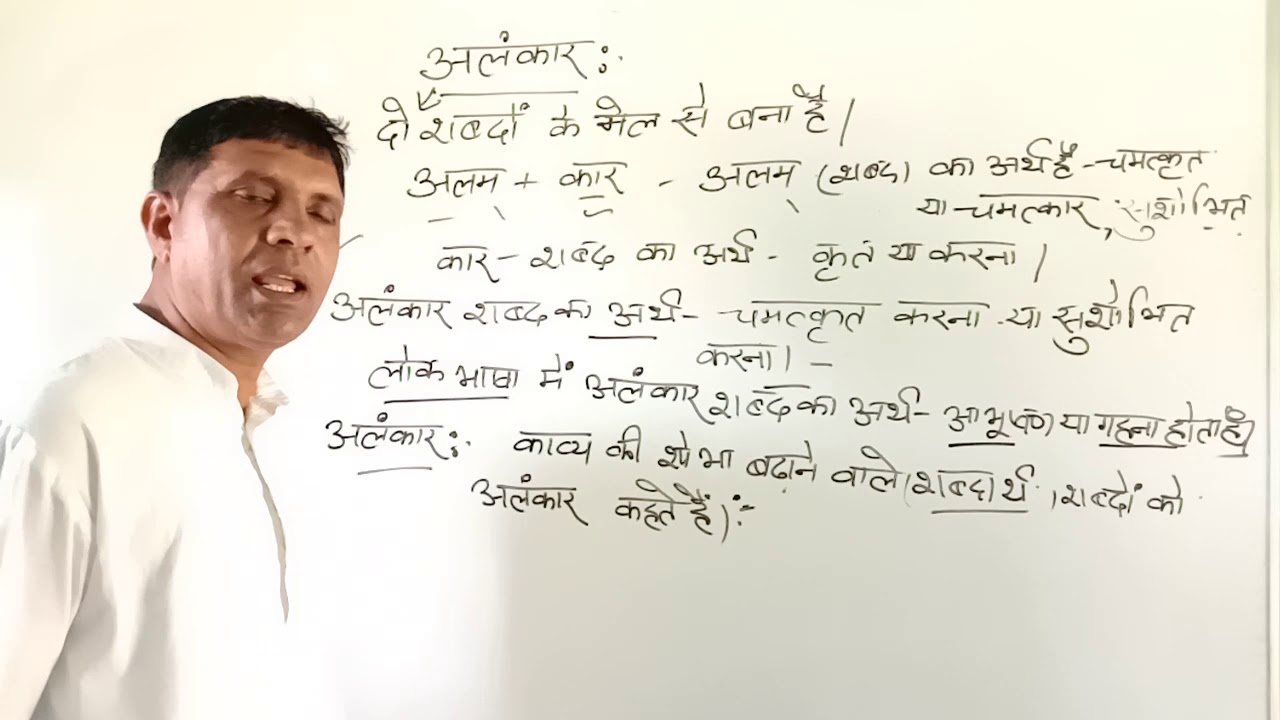 अलंकार :-
दो शब्दों के मेल से बना है।
अलम् + कार - अलम् (शब्द) का अर्थ है - चमत्कृत
या चमत्कार, सुशोभित
कार - शब्द का अर्थ - कृत या करना।
अलंकार शब्द का अर्थ - चमत्कृत करना या सुशोभित
करना। -
लोक भाषा में अलंकार शब्द का अर्थ - आभूषण या गहना होता है।
अलंकार :- काव्य की शोभा बढ़ाने वाले शब्दार्थ, शब्दों को
अलंकार कहते हैं। :-